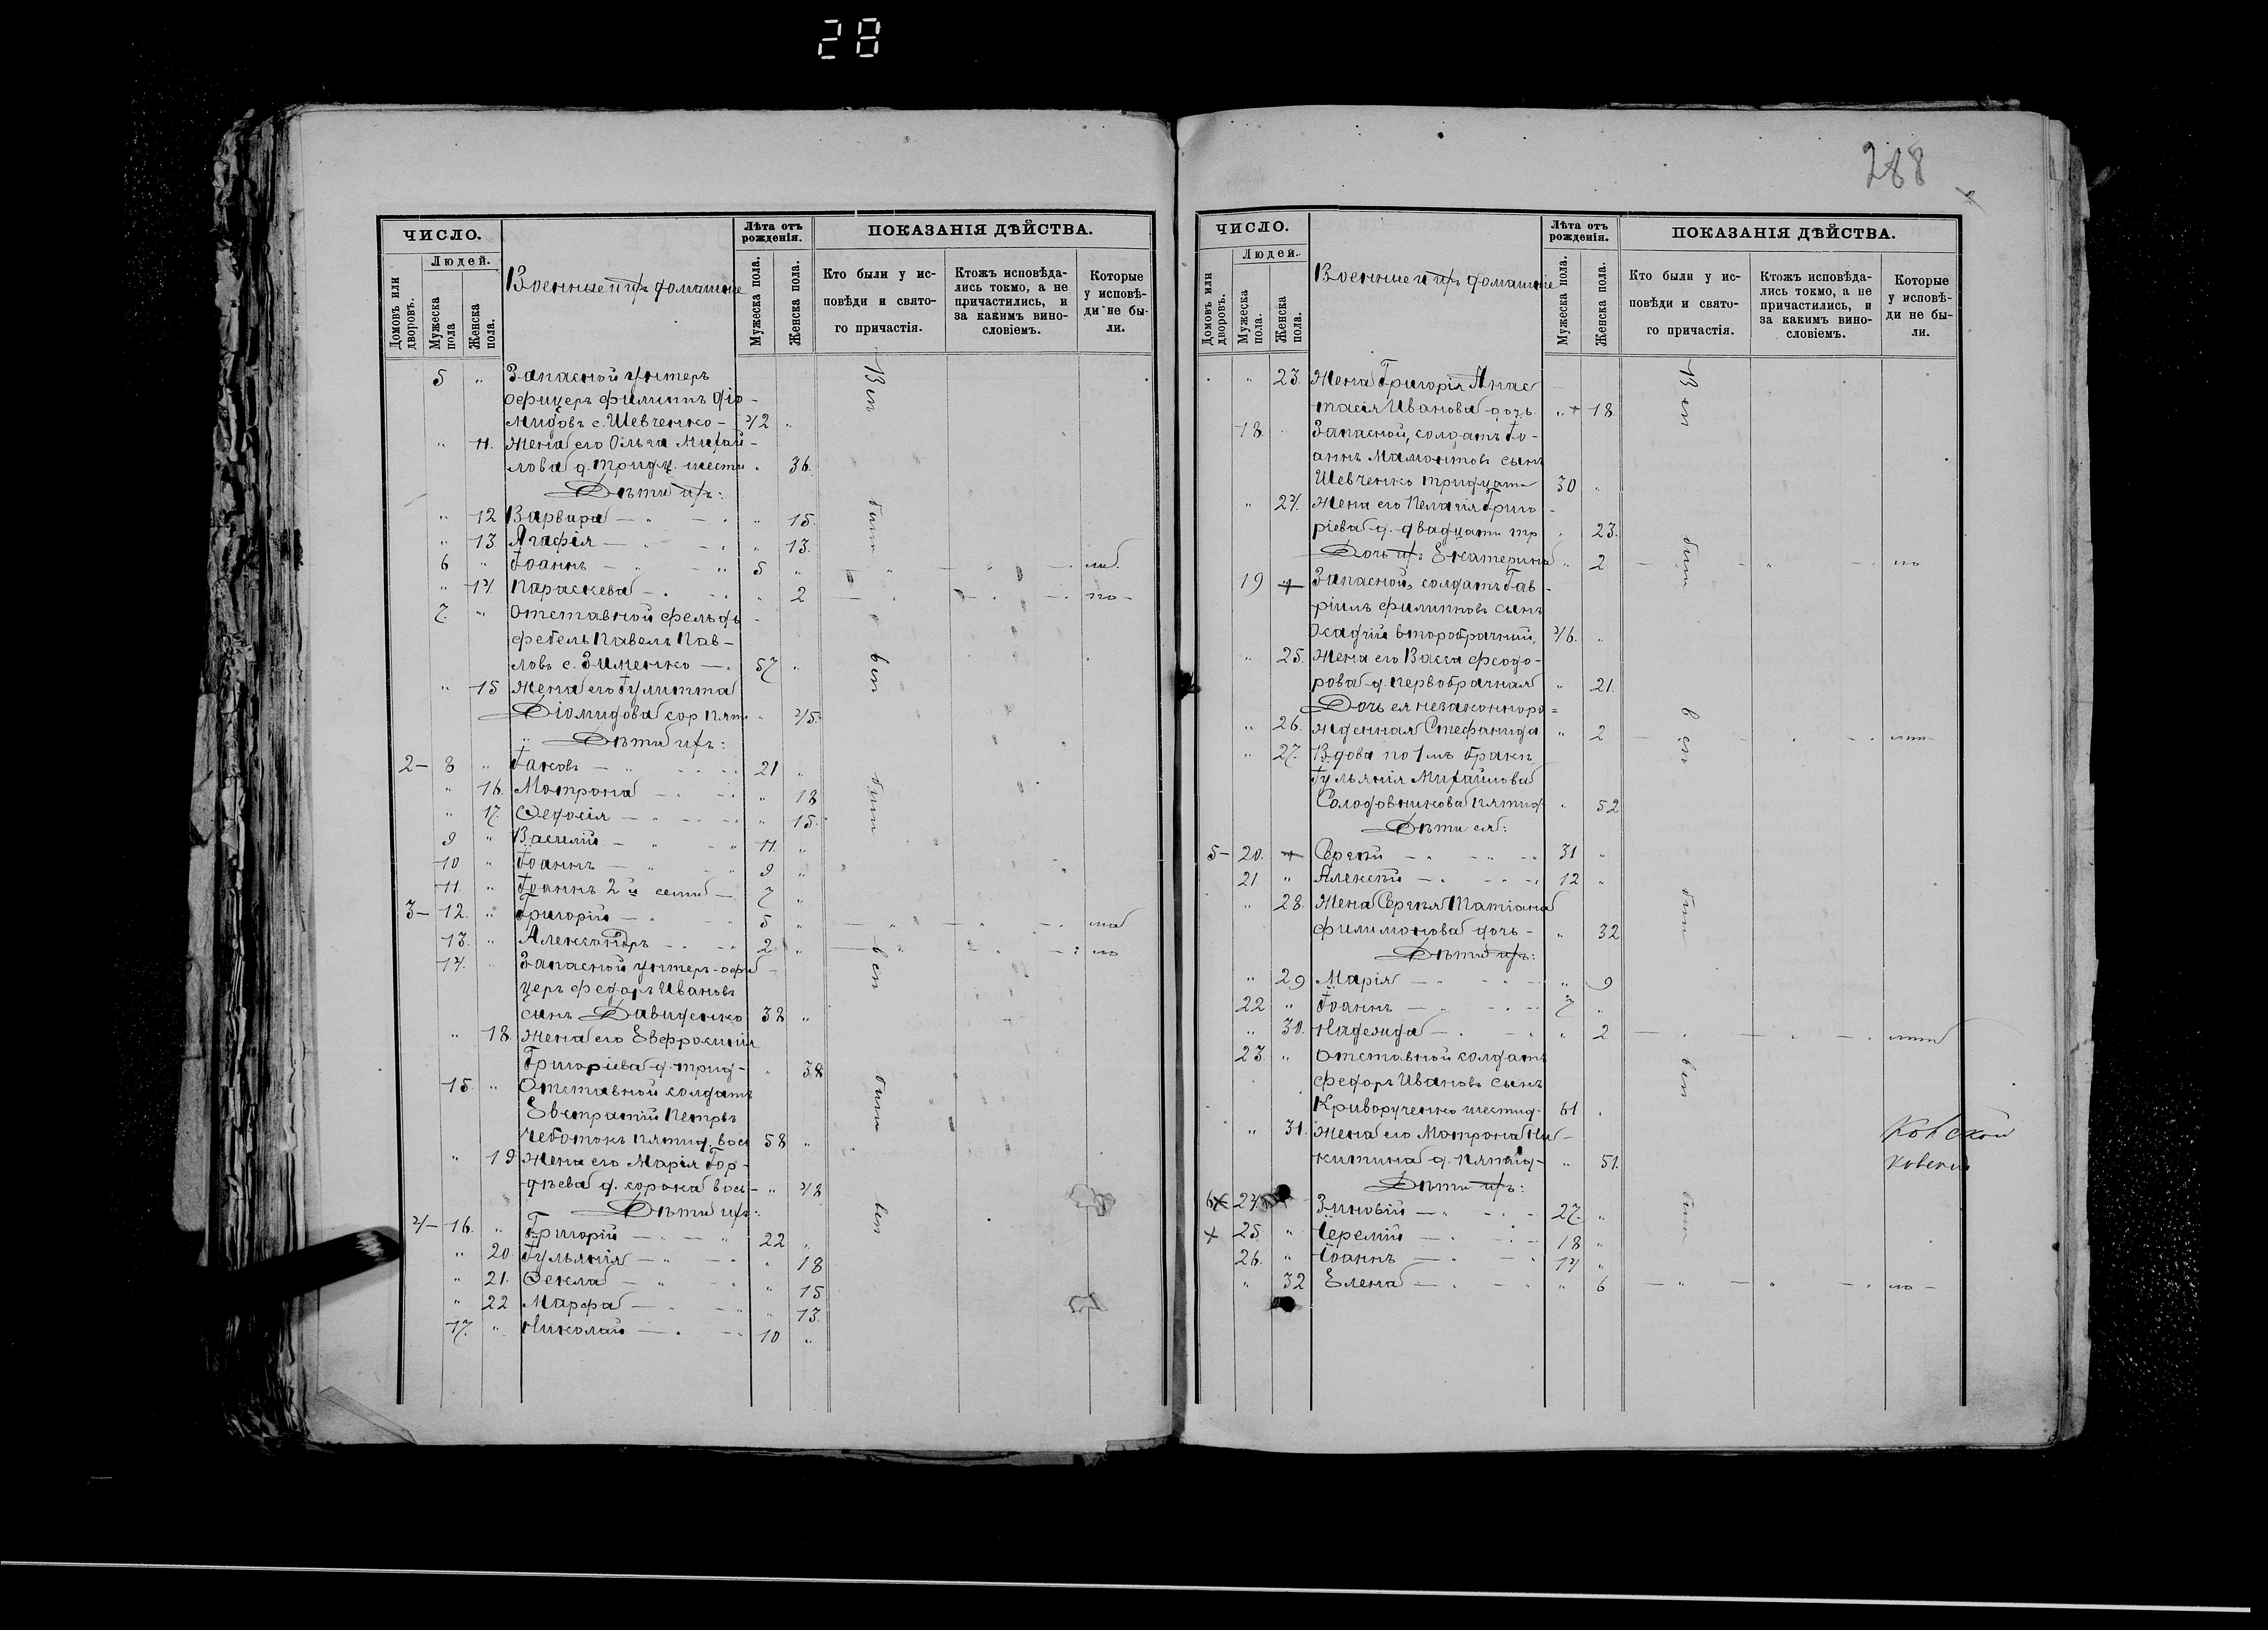 28
288
ЧИСЛО.
Людей.
Домовъ или дворовъ.
Мужеска пола
Женска пола.
Военные и ихъ домашніе
Лѣта отъ рожденія.
Мужеска пола.
Женска пола.
ПОКАЗАНІЯ ДѢЙСТВА.
Кто были у исповѣди и святого причастія.
Ктожъ исповѣдались токмо, а не причастились, и за какимъ винословіемъ.
Которые у исповѣди не были.
5 " Запасной унтеръ
офицеръ Филиппъ Діо-
мидовъ с. Шевченко - 42 "
" 11. Жена его Ольга Михай-
лова д. тридц. шести " 36.
Дѣти ихъ:
" 12 Варвара — " — " " 15.
" 13 Агафія — " — " " 13.
6 " Іоаннъ — " — " 5 "
" 14. Параскева — " — " " 2
7. " Отставной фельд-
фебель Павелъ Пав-
ловъ с. Зименко — 57 "
" 15 Жена его Іулитта
Діомидова сор. пять " 45.
Дѣти ихъ:
2 — 8 " Іаковъ — " — " 21 "
" 16. Матрона — " — " " 18
" 17. Ѳедосія — " — " " 15.
9 " Василій — " — " 11. "
10 " Іоаннъ — " — " 9 "
11. " Іоаннъ 2й семи — 7 "
3 — 12. " Григорій — " — " 5 "
13. " Александръ — " — " 2 "
14. " Запасной унтеръ-офи-
церъ Федоръ Ивановъ
сынъ Давиденко 38 "
" 18. Жена его Евфросинія
Григоріева д. трид- " 38
15. " Отставной солдатъ
Евстратій Петровъ
Чеботокъ пятид. вос. 58 "
" 19 Жена его Марія Гор-
дѣева д. сорока вось- " 48
Дѣти ихъ:
4 — 16. " Григорій — " — " 22 "
" 20. Іуліанія — " — " " 18
" 21. Ѳекла — " — " " 15
" 22 Марфа — " — " " 13.
17. " Николай — " — " 10 "
Вси
были
вси
были
вси
были
вси
ЧИСЛО.
Людей.
Домовъ или дворовъ.
Мужеска пола.
Женска пола.
Военные и ихъ домашніе
Лѣта отъ рожденія.
Мужеска пола.
Женска пола.
ПОКАЗАНІЯ ДѢЙСТВА.
Кто были у исповѣди и святого причастія.
Ктожъ исповѣдались токмо, а не причастились, и за какимъ винословіемъ.
Которые у исповѣди не были.
" 23. Жена Григорія Анас
тасія Иванова дочь. " 18
18. " Запасной, солдатъ Іо-
аннъ Мамонтовъ сынъ
Шевченко тридцати 30 "
" 24. Жена его Пелагія Григо-
ріева д. двадцати тр " 23.
Дочь ихъ Екатерина " 2
19 Запасной, солдатъ Гав-
ріилъ Филипповъ сынъ
Осадчій второбрачный, 46. "
" 25. Жена его Васса Ѳеодо-
рова д. первобрачная " 21.
Дочь ея незаконноро=
" 26. жденная Стефанида " 2
" 27. Вдова по 1мъ бракѣ
Іуліанія Михайлова
Солодовникова пятид " 52
Дѣти ея:
5 — 20. Сергѣй — " — " 31 "
21 " Алексѣй — " — " 12 "
" 28. Жена Сергѣя Татіана
Филимонова дочь — " 32
Дѣти ихъ:
" 29 Марія — " — " " 9
22 " Іоаннъ — " — " 7 "
" 30. Надежда — " — " " 2
23. " Отставной солдатъ
Федоръ Ивановъ сынъ
Криворученко шестид. 61 "
" 31. Жена его Матрона Ни-
китина д. пятид- " 51.
Дѣти ихъ:
6 24 Зиновій — " — " 27. "
25 " Іеремій — " — " 18 "
26. " Іоаннъ — " — " 14 "
" 32 Елена — " — " " 6
Вси
были
вси
были
вси
были